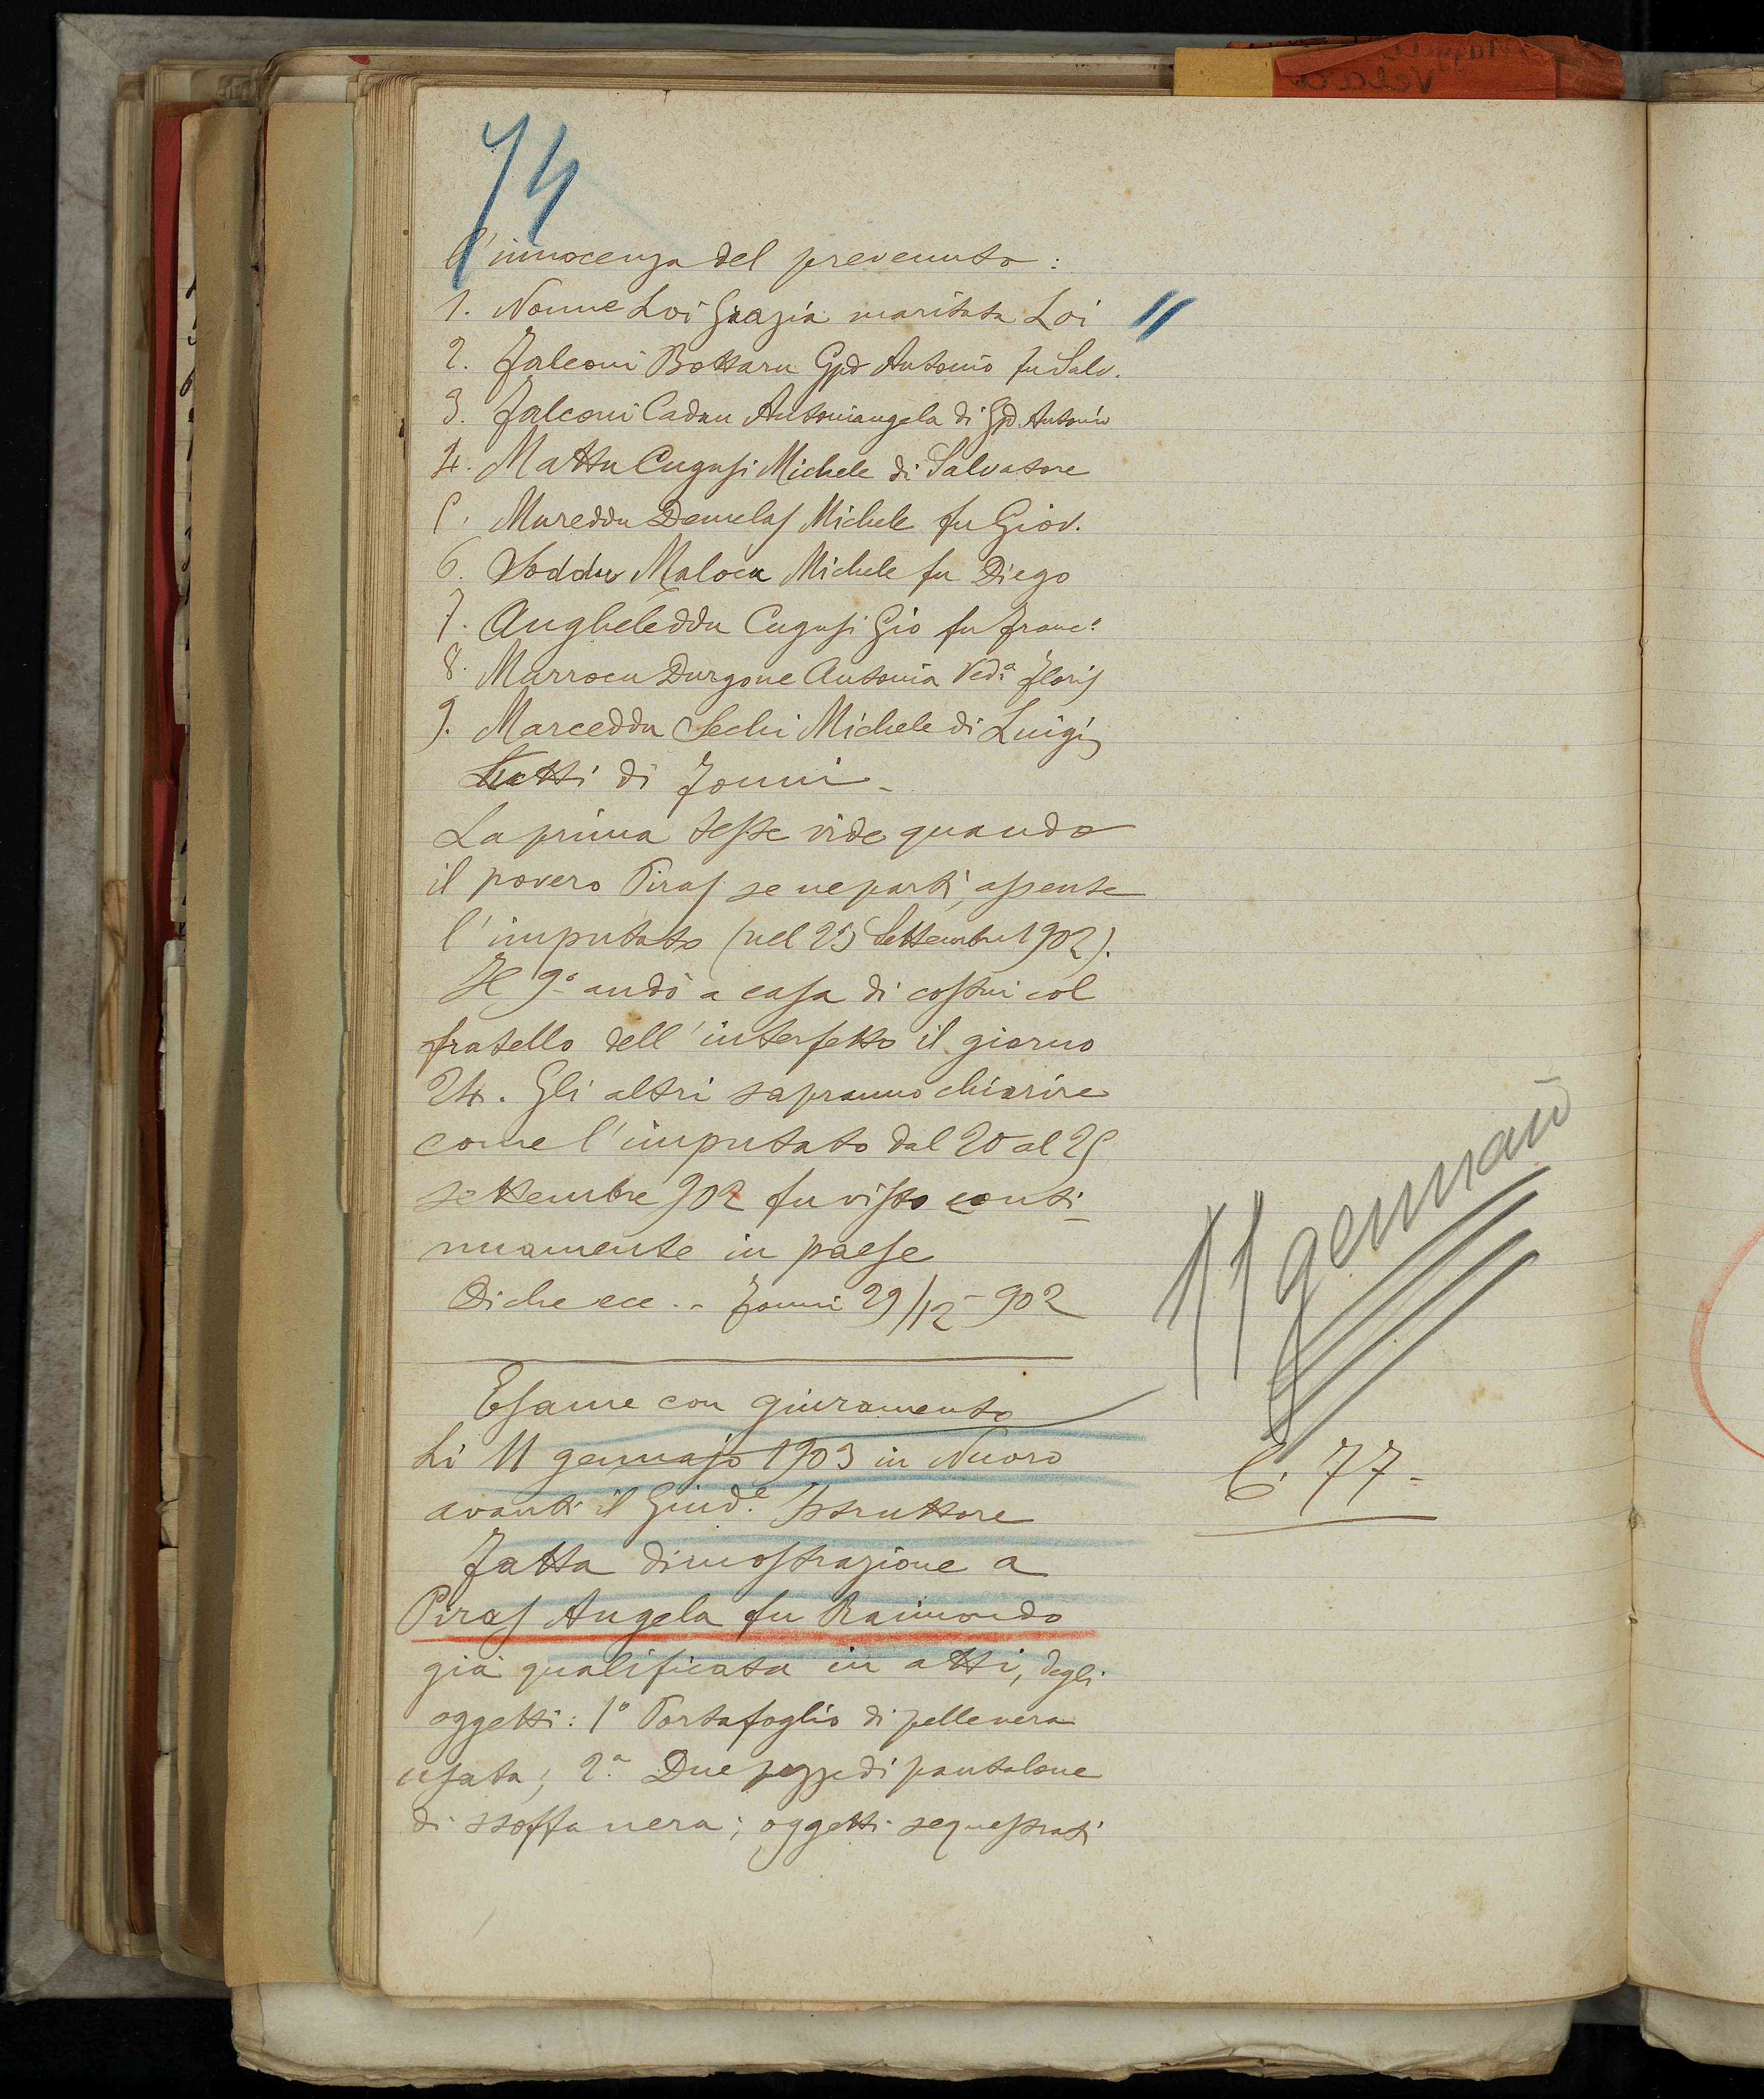 74
l'innocenza del prevenuto:
1. Nonne Loi Grazia maritata Loi "
2. Falconi Bottaru Gpe Antonio fu Salv.
3. Falconi Cadau Antoniangela di Gpe. Antonio
4. Mattu Cugusi Michele di Salvatore
5. Mureddu Demelas Michele fu Giov.
6. Soddu Maloccu Michele fu Diego
7. Angheleddu Cugusi Gio fu Franc:
8. Marrocu Durgone Antonia Ved.a Floris
9. Marceddu Sechi Michele di Luigi,
tutti di Fonni -
La prima teste vide quando
il povero Piras se ne partì, assente
l'imputato (nel 23 Settembre 1902).
Il 9° andò a casa di costui col
fratello dell'interfetto il giorno
24. Gli altri sapranno chiarire
come l'imputato dal 20 al 25
settembre 902 fu visto conti-
nuamente in paese
Di che ecc. - Fonni 29/12 - 902
11 gennaio
Esame con giuramento
Li 11 gennajo 1903 in Nuoro
C. 77 -
avanti il Giud.e Istruttore
Fatta dimostrazione a
Piras Angela fu Raimondo
già qualificata in atti, degli
oggetti: 1° Portafoglio di pelle nera
usata; 2.a Due pezze di pantalone
di stoffa nera; oggetti sequestrati